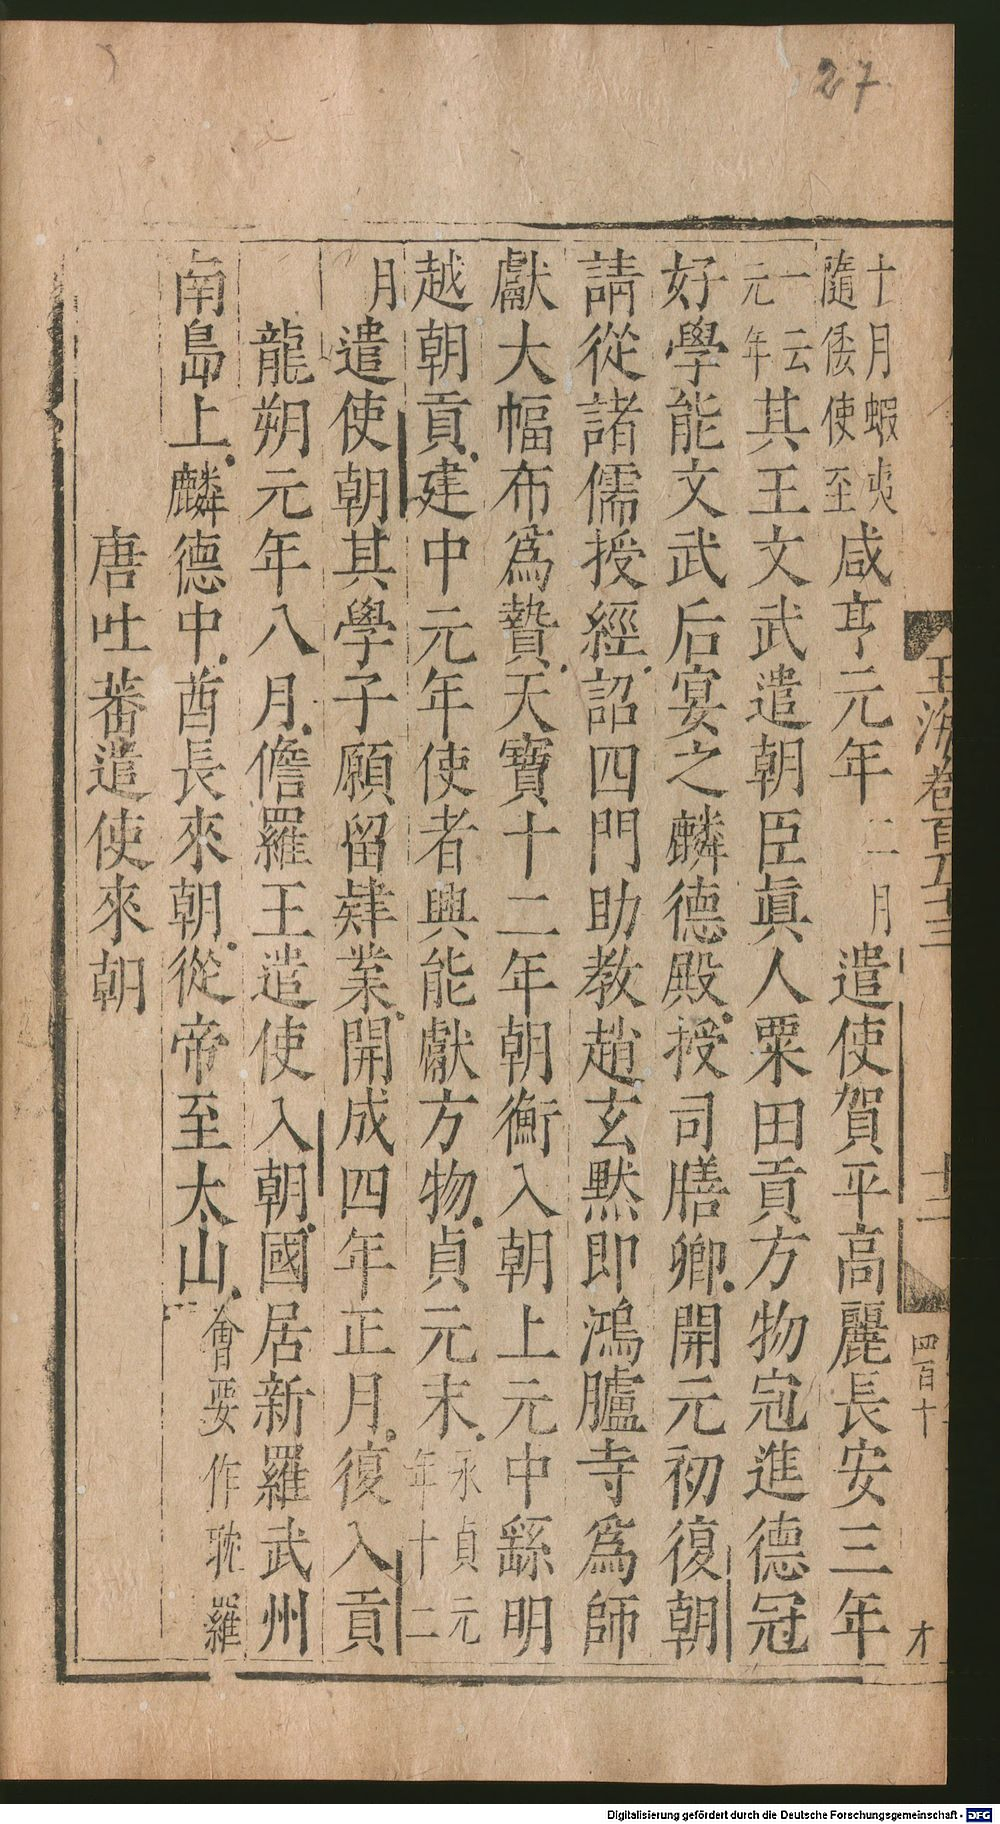 27
玉海卷百五十三
十二
四百十
才
十月蝦夷隨倭使至咸亨元年二月遣使賀平高麗長安三年
一云元年其王文武遣朝臣眞人粟田貢方物冦進德冠
好學能文武后宴之麟德殿授司膳卿開元初復朝
請從諸儒授經詔四門助教趙玄黙即鴻臚寺爲師
獻大幅布爲贄天寶十二年朝衡入朝上元中繇明
越朝貢建中元年使者興能獻方物貞元末永貞元年十二
月遣使朝其學子願留肄業開成四年正月復入貢
龍朔元年八月儋羅王遣使入朝國居新羅武州
南島上麟德中酋長來朝從帝至太山會要作耽羅
唐吐蕃遣使來朝
Digitalisierung gefördert durch die Deutsche Forschungsgemeinschaft - DFG